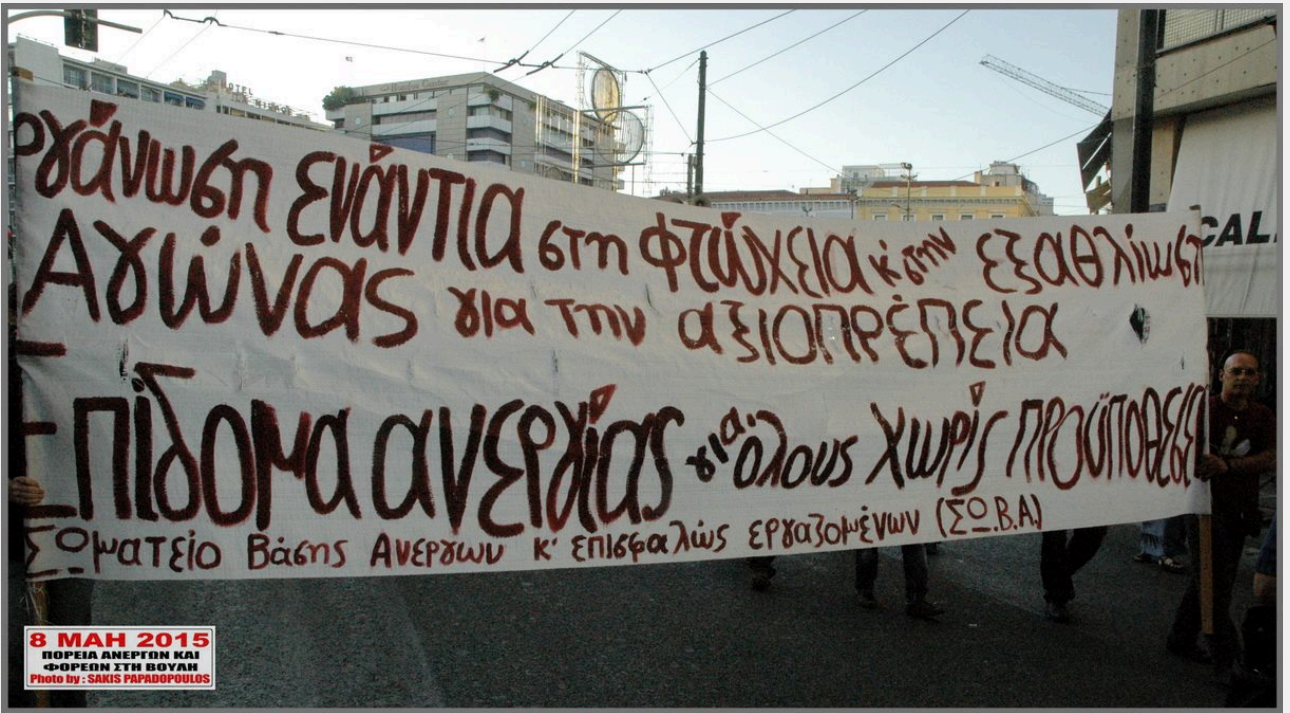 ργάνωση ενάντια στη φτώχεια κ' στην εξαθλίωση
Αγώνας για την αξιοπρέπεια
Επίδομα ανεργίας για όλους χωρίς προϋποθέσει
Σωματείο Βάσης Ανέργων κ' επισφαλώς εργαζομένων (ΣΩ.Β.Α)
CAL
8 ΜΑΗ 2015
ΠΟΡΕΙΑ ΑΝΕΡΓΩΝ ΚΑΙ
ΦΟΡΕΩΝ ΣΤΗ ΒΟΥΛΗ
Photo by : SAKIS PAPADOPOULOS